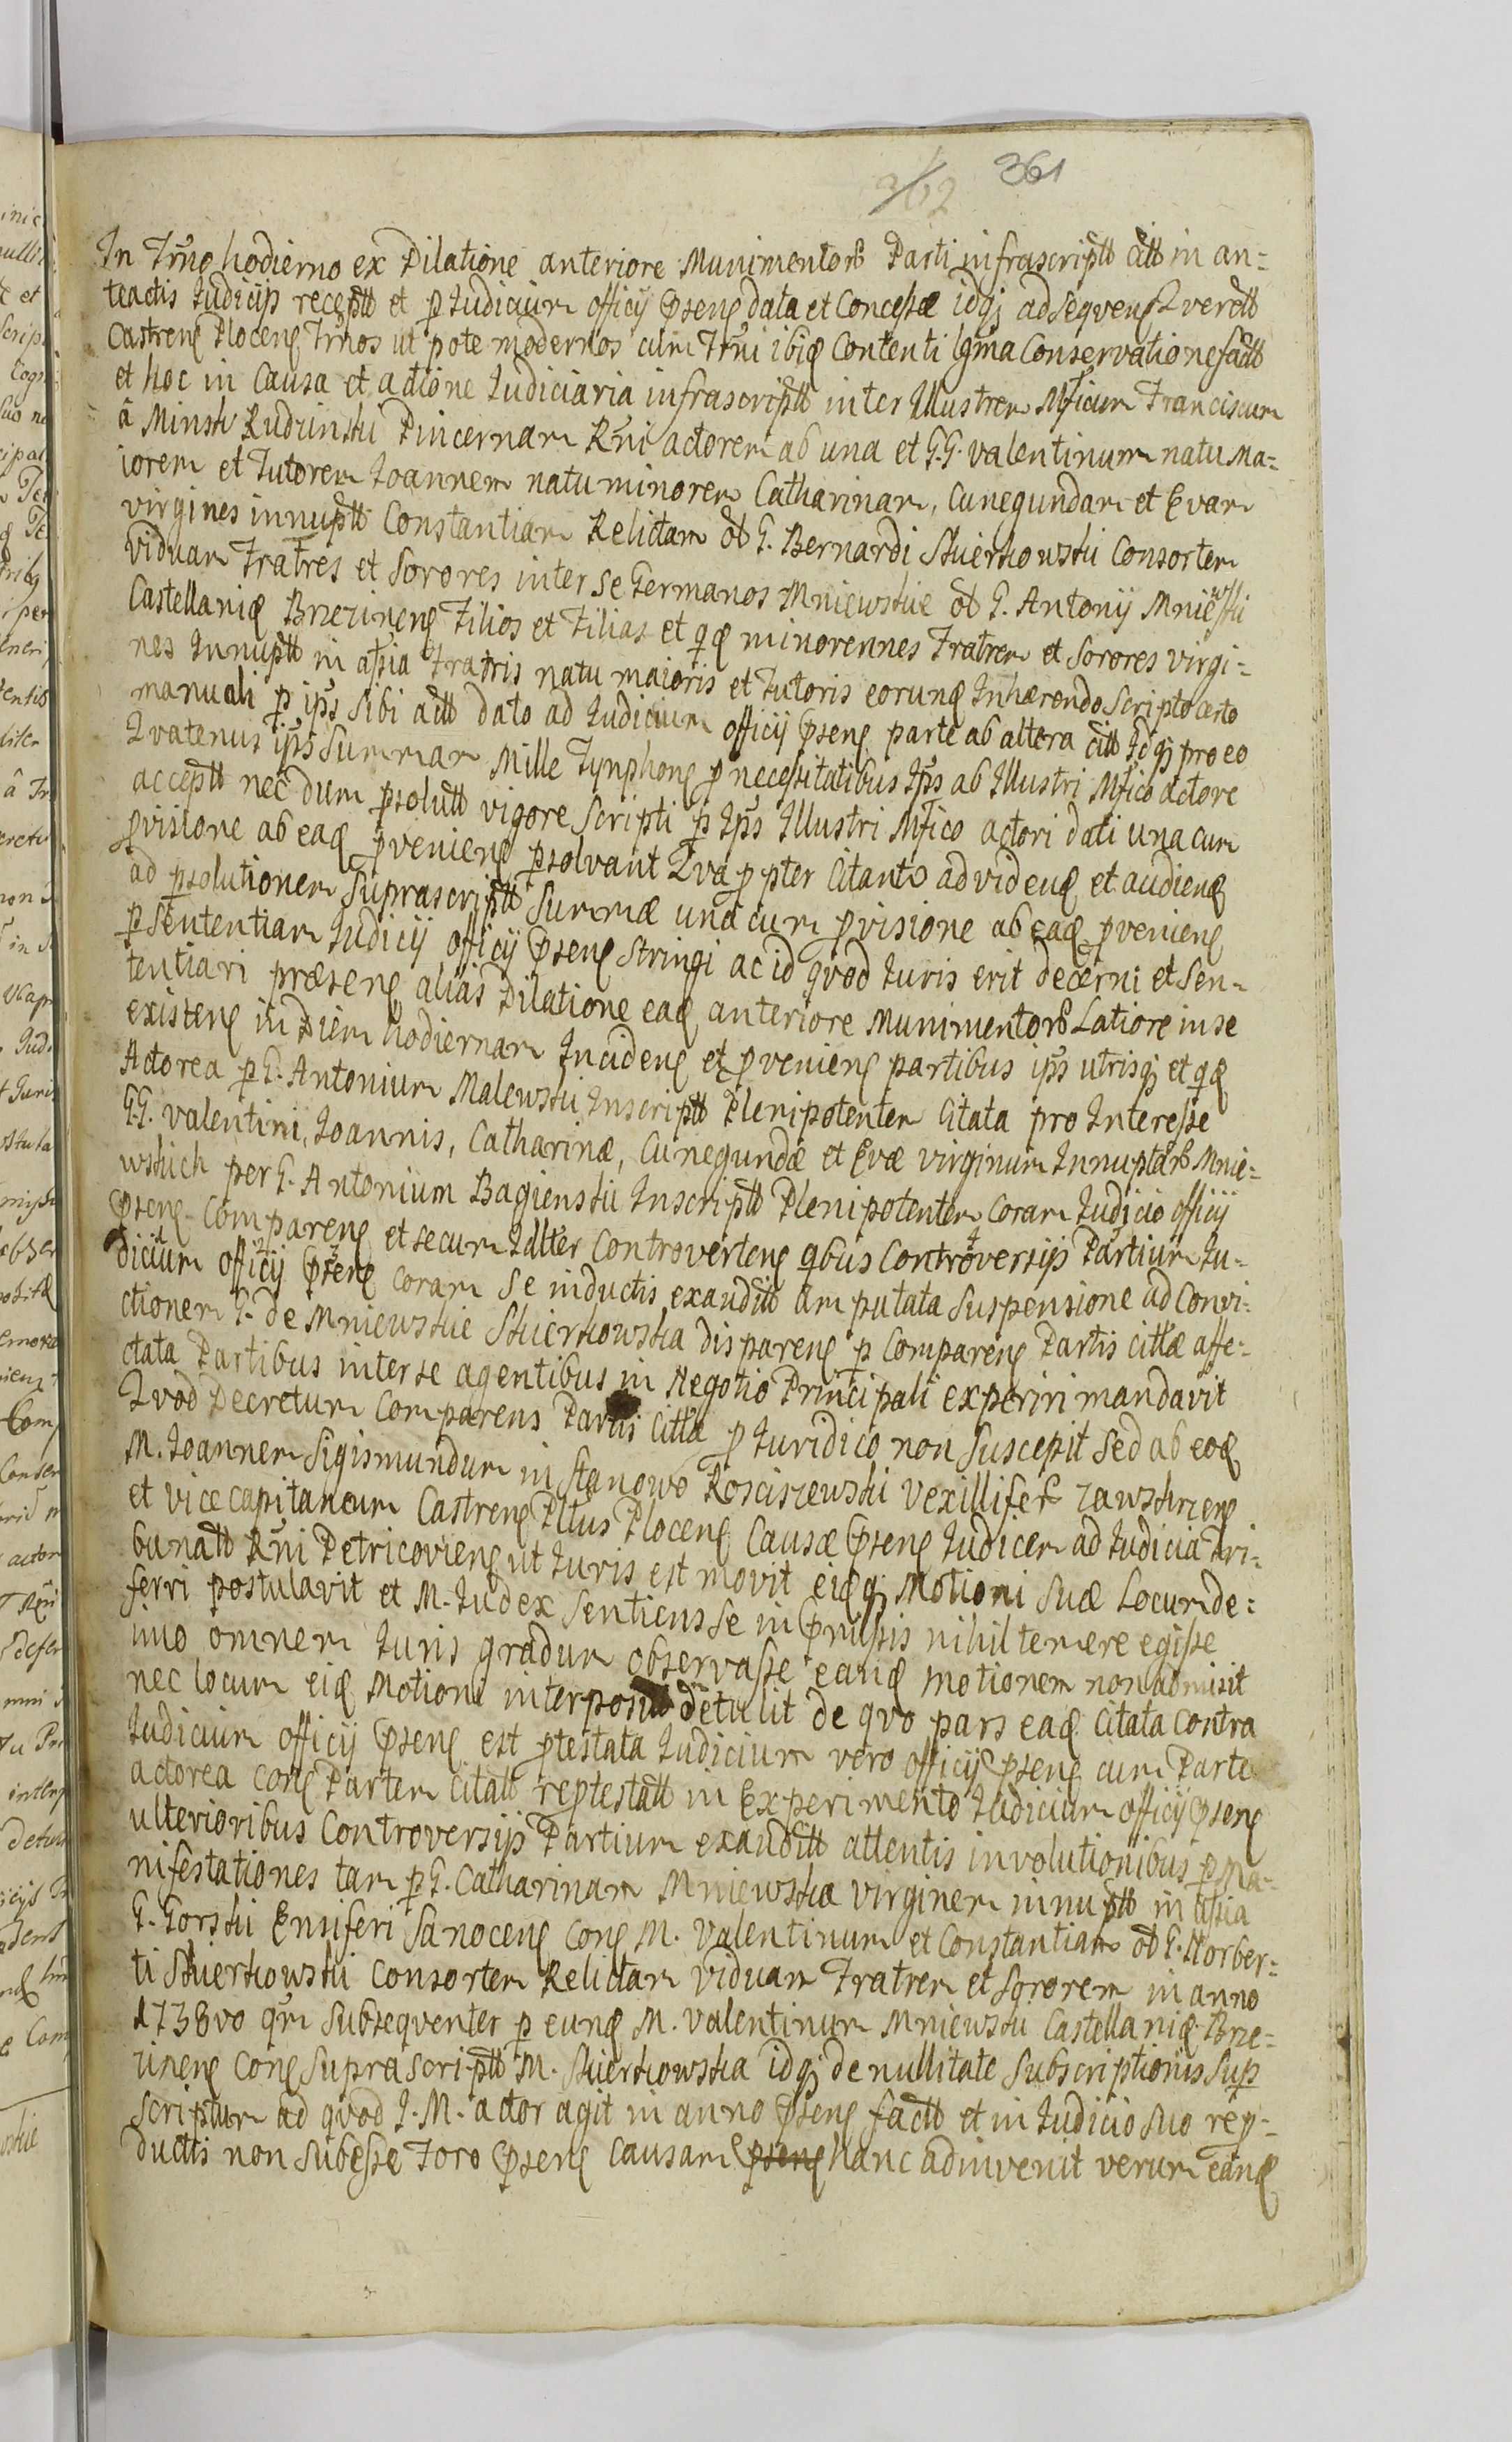 362 361
In Trno hodierno ex Dilatione anteriore Munimentor Parti infrascriptt citt in an=
teactis Judicijs receptt et p Judicium officij pseng data et Concessæ idqj ad Seqveng Qverett
Castreng Ploceng Trnos ut pote modernos cum Trni ibiq Contenti lgma Conservatione factt
et hoc in Causa et actione Judiciaria infrascriptt inter Illustrem Mficum Franciscum
â Minsk Rudzinski Pincernam Rni actorem ab una et G.G. valentinum natu Ma=
iorem et Tutorem Joannem natu minorem Catharinam, Cunegundam et Evam
virgines innuptt Constantiam Relictam ol G. Bernardi Skierkowski Consortem
viduam Fratres et Sorores inter se Germanos Mniewskie ol G. Antonij Mniewski
Castellaniq Brzezineng Filios et Filias et qq minorennes Fratrem et Sorores virgi=
nes Innuptt in assia Fratris natu maioris et Tutoris eorunq Inhærendo Scripto certo
manuali p ips sibi actt dato ad Judicium officij pseng parte ab altera citt Idqj pro eo
Qvatenus ips Summam Mille Tynphong p necessitatibus Ips ab Illustri Mfico actore
acceptt nec dum psolutt vigore Scripti p Ips Illustri Mfico actori dati una cum
pvisione ab eaq pvenieng psolvant Qva p pter Citanto ad videnq et audienq
ad psolutionem Suprascriptt Summæ una cum pvisione ab eaq pvenieng
p Sententiam Judicij officij pseng Stringi ac id qvod Juris erit decerni et Sen=
tentiari præseng alias Dilatione eaq anteriore Munimentor Latiore in se
existeng in Diem hodiernam Incideng et pvenieng partibus ips utrisqj et qq
Actorea p G. Antonium Malewski Inscriptt Plenipotentem Citata pro Interesse
GG. valentini, Joannis, Catharinæ, Cunegundæ et Evæ virginum Innuptar Mnie=
wskich per G. Antonium Bagienski Inscriptt Plenipotentem Coram Judicio officij
pseng Compareng et secum Idtter Controverteng qbus Controversijs Partium Ju=
dicium officij pseng coram se inductis exauditt amputata Suspensione ad Convi=
ctionem G. de Mniewskie Skierkowska dispareng p Compareng Partis cittæ affe=
ctata Partibus inter se agentibus in Negotio Principali experiri mandavit
Qvod Decretum Comparens Partis Cittæ p Juridico non Suscepit Sed ab eoq
M. Joannem Sigismundum in Stanowo Kosciszewski Vexillifer zawskrzeng
et vice capitaneum Castreng Pltus Ploceng Causæ pseng Judicem ad Judicia Tri=
bunatt Rni Petricovieng ut Juris est movit eiqqj Motioni Suæ Locum de=
ferri postulavit et M. Judex Sentiens se in pmissis nihil temere egisse
imo omnem Juris gradum observasse eanq motionem non admisit
nec locum eiq Motioni interposit detulit de qvo pars eaq Citata contra
Judicium officij pseng est ptestata Judicium vero officij pseng cum Parte
actorea cong Partem citatt reptestatt in Experimento Judicium officij pseng
ulterioribus Controversijs Partium exauditt attentis involutionibus p Ma=
nifestationes tam p G. Catharinam Mniewska virginem innuptt in assia
G. Gorski Ensiferi Sanoceng cong M. Valentinum et Constantiam ol G. Norber=
ti Skierkowski Consortem Relictam Viduam Fratrem et Sororem in anno
1738vo qm Subseqventer p eunq M. Valentinum Mniewski Castellaniq Brze=
zineng Cong Suprascriptt M. Skierkowska idqj de nullitate Subscriptionis Sup
Scriptum ad qvod J. M. actor agit in anno pseng factt et in Judicio Suo rep=
ductis non Subesse Foro pseng Causam pseng hanc adinvenit verum eanq